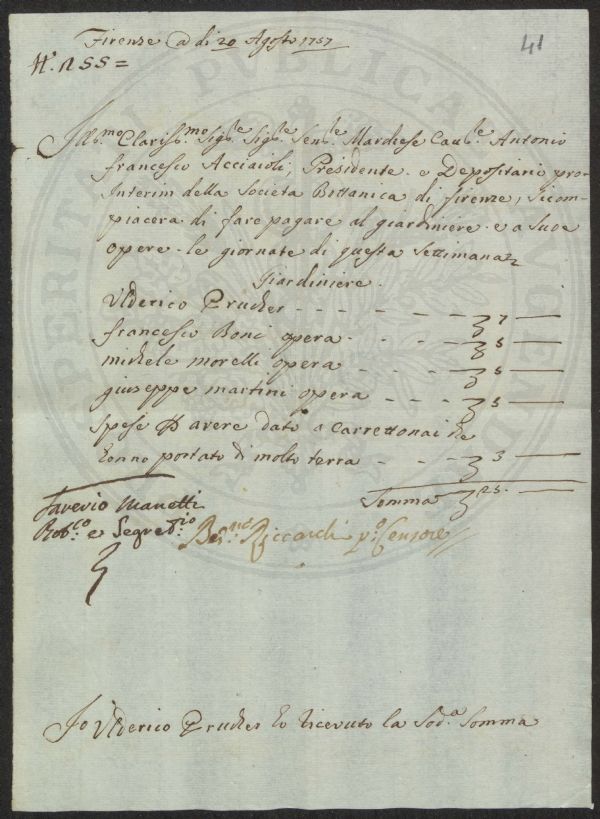 41
Firenze a di 20 Agosto 1757
N.° 155 =
Ill:mo Clariss:mo Sig:re Sig:re Sen:re Marchese Cau:re Antonio
francesco Acciaioli, Presidente e Depositario pro
Interim della Societa Bottanica di firenze, si com-
piacera di fare pagare al giardiniere e a sue
opere le giornate di questa Settimana
Giardiniere
Ulderico Prucher - - - - - 7 —
francesco Boni opera - - - - 5 —
michele morelli opera - - - 5 —
giuseppe martini opera - - - 5 —
Spese p avere dato a Carrettonai che
Conno portato di molto terra - - - 3 —
Somma 25 —
Saverio Manetti
Pub:co e Segret:rio
Ber:do Riccardi p:o Censore
Io Ulderico Prucher ho ricevuto la Sod:a Somma